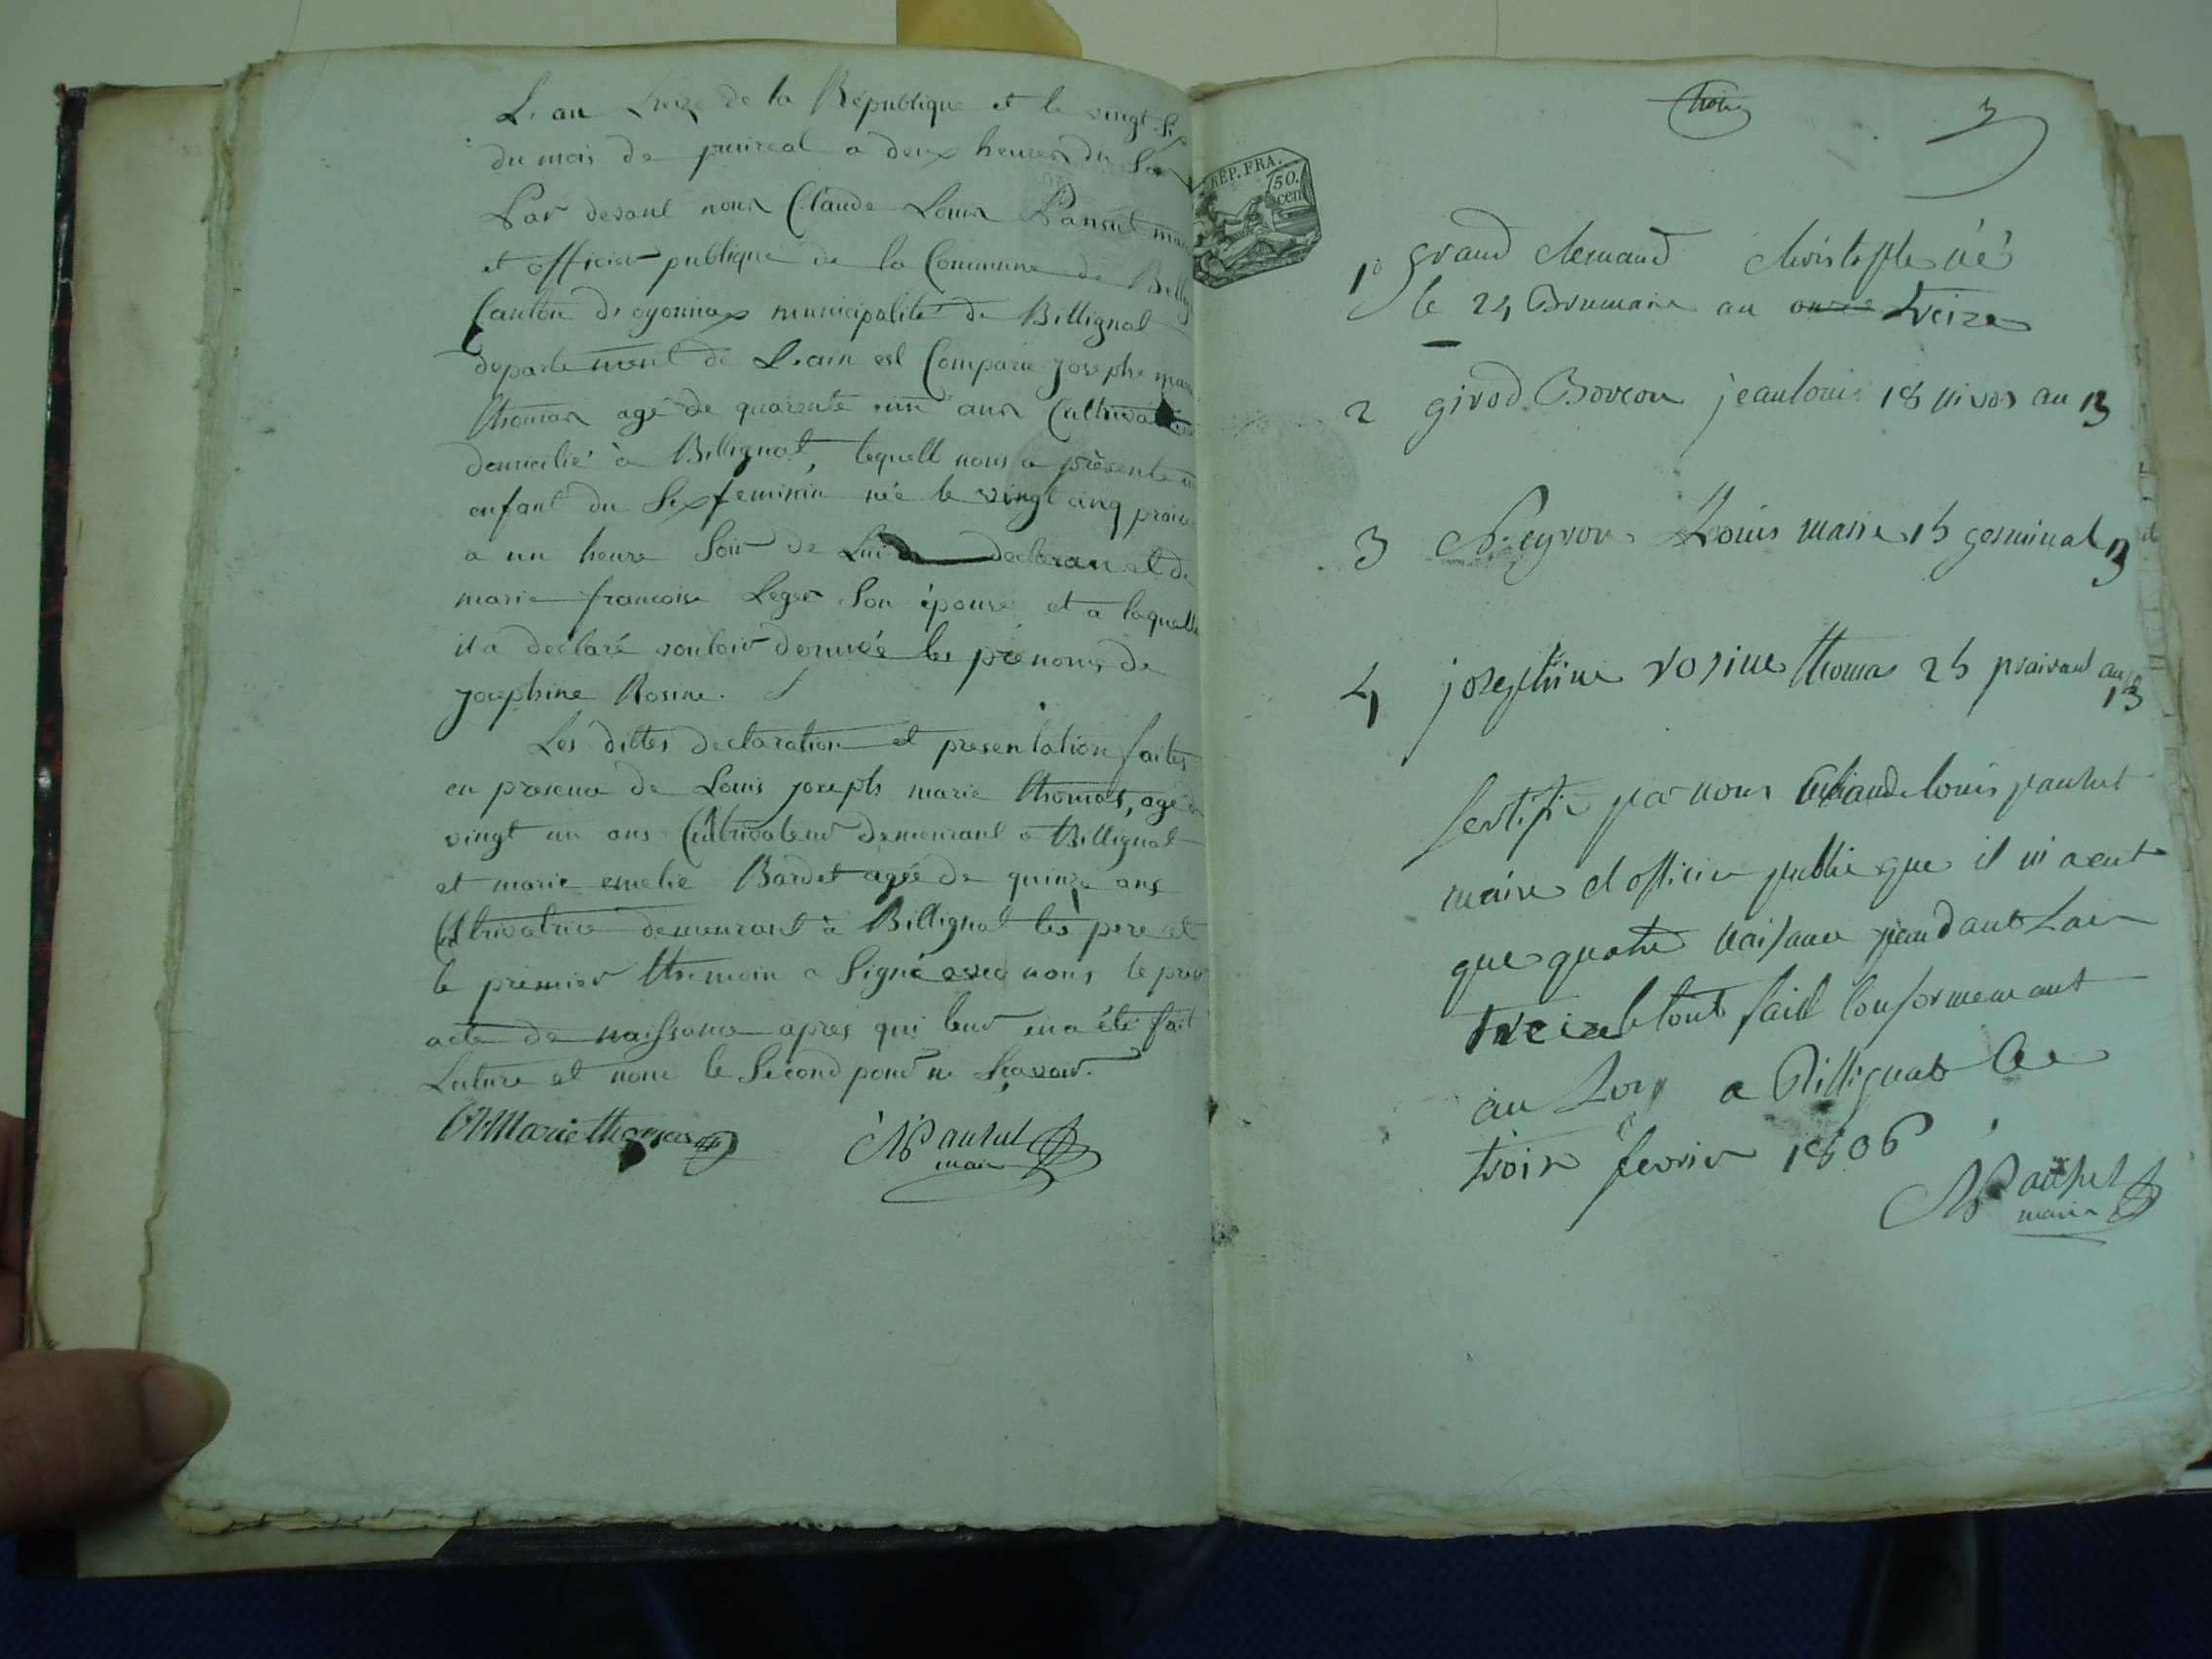 L'an treize de la République et le vingt six
du mois de praireal a deux heures du Soir
Par devant nous Claude Louis Pansut
et officier publique de la Commune de
Canton d'oyonnax municipalité de Billignat
departement de L'ain est Comparu josephe
thomas agé de quarente un ans Cultivateur
domicilié à Billignat, lequell nous a présenté
enfant du Sexfeminin née le vingt cinq
a un heure Soir de Lui declaran et de
marie francoise Leger Son épouse et a laquelle
il a declaré vouloir donnée les prénoms de
josephine Rosine.
Les dittes declaration et presentation faites
en presence de Louis joseph marie thomas, agé
vingt un ans Cultivateur demeurant a Billignat
et marie emelie Bardet agée de quinze ans
Cultivatrice demeurant à Billignat les pere et
le premier themoin a Signé avec nous le
acte de naissance apres qui leur en a été fait
Lecture et nom le Second pour ne Sçavoir.
Marie thomas
Pansut
maire
trois
3
REP. FRA.
50.
cent
1° grand clement christophe né
le 24 Brumaire an treize
2 girod Borron jean louis 18 nivos an 13
3 Neyron Louis marie 15 germinal 13
4 josephine rosine thomas 25 praireal an
13
Certifié par nous Claude louis pansut
maire et officier public que il ni a eut
que quatre naisance pendant Lan
treize le tout fait conformement
au Loix a Billignat le
trois fevrier 1806
Pansut
maire